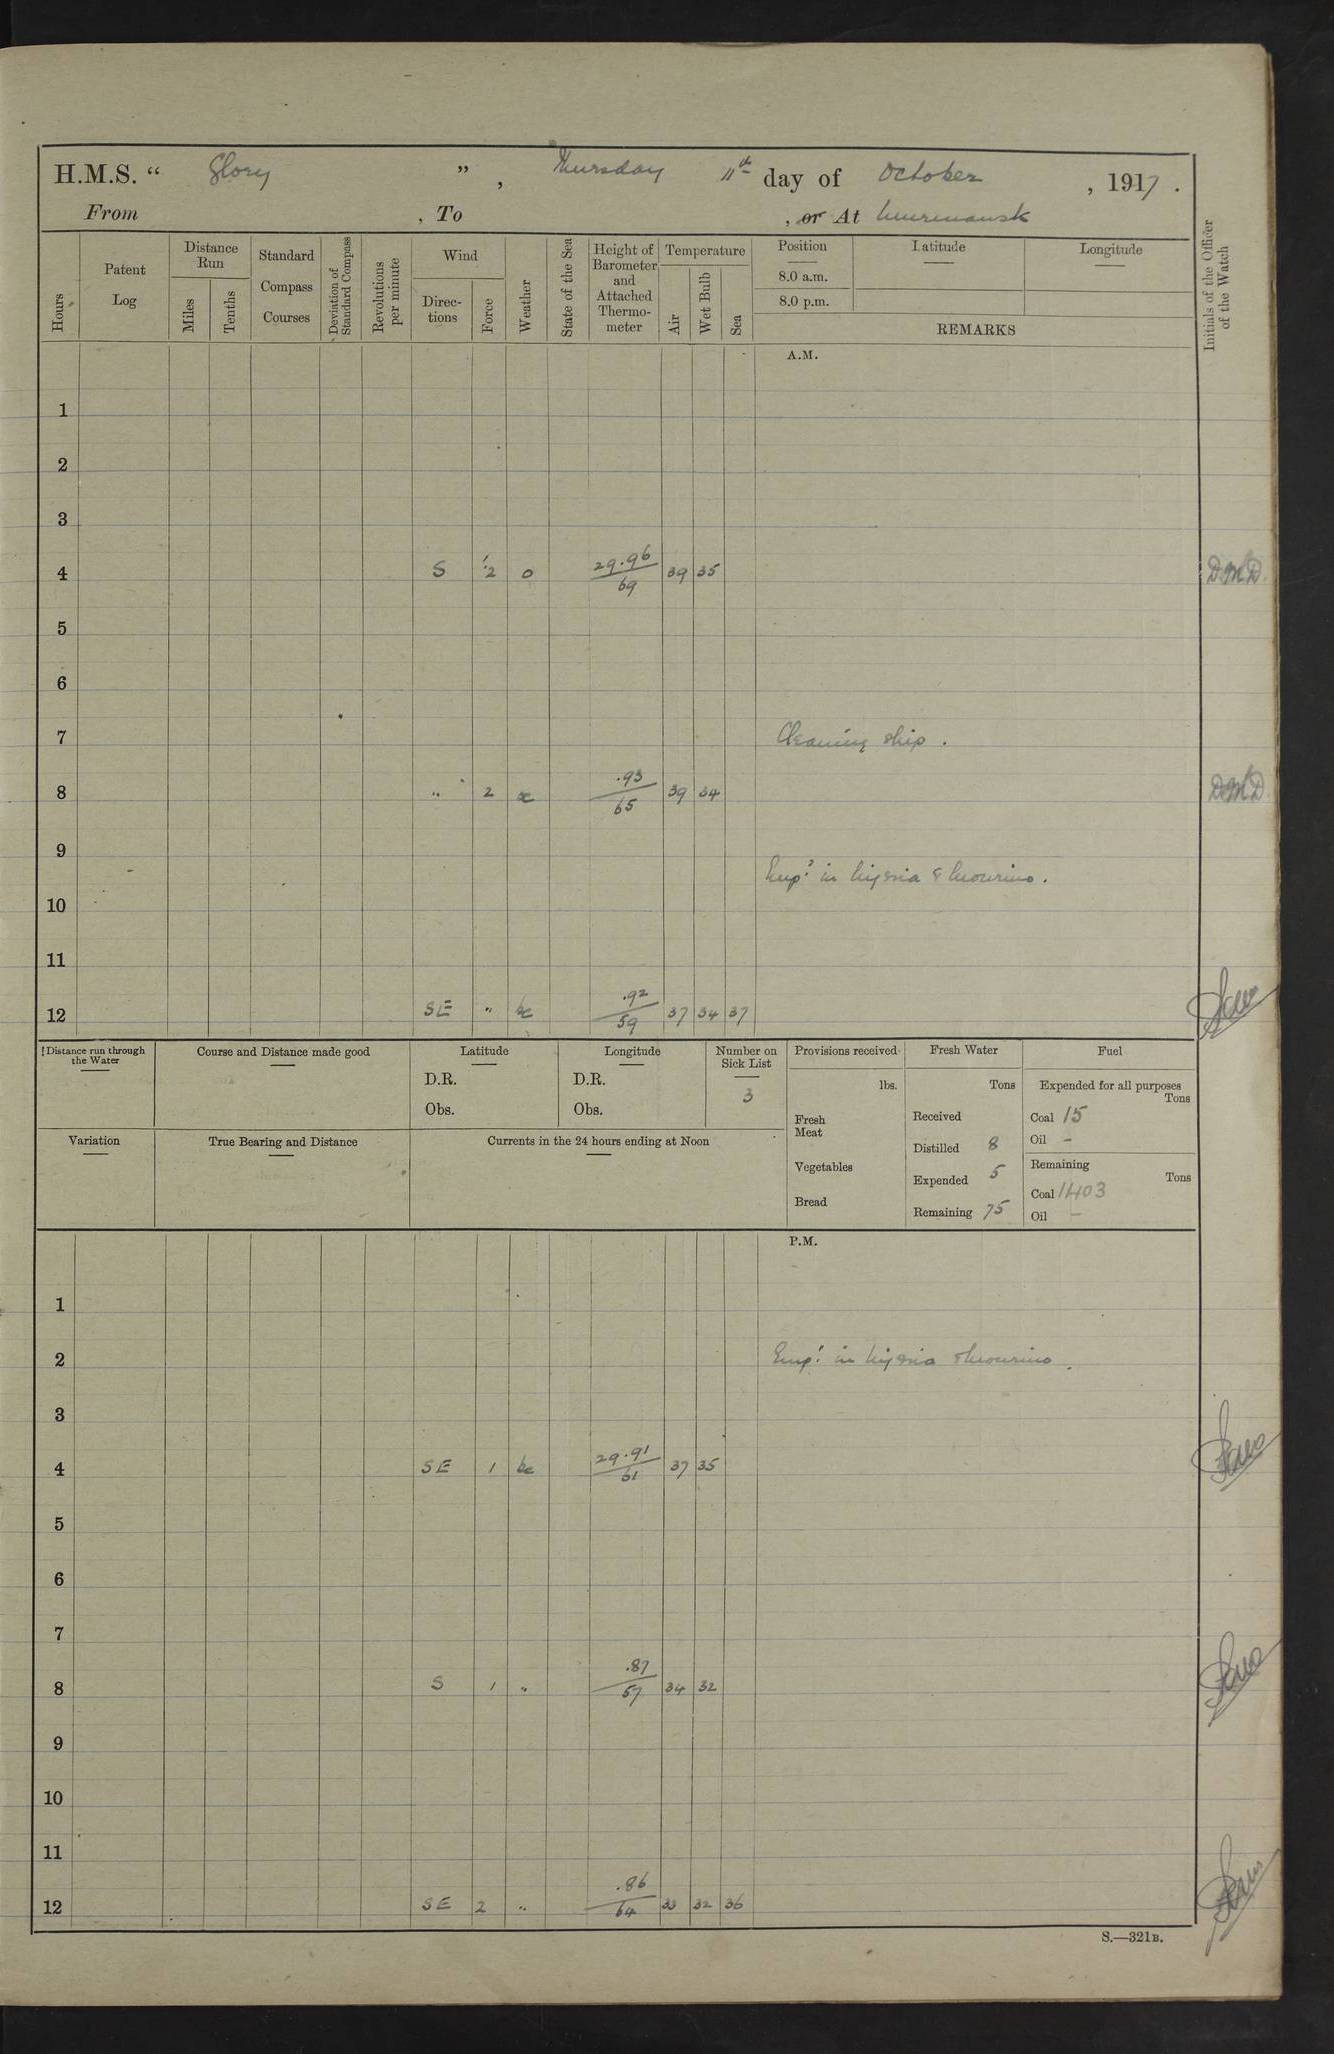 H.M.S. “ Glory ” , Thursday 11th day of October , 1917 .
From , To , or At Murmansk
Hours
Patent Log
Distance Run
Miles
Tenths
Standard Compass Courses
Deviation of Standard Compass
Revolutions per minute
Wind
Directions
Force
Weather
State of the Sea
Height of Barometer and Attached Thermometer
Temperature
Air
Wet Bulb
Sea
Position
8.0 a.m.
8.0 p.m.
Latitude
Longitude
REMARKS
Initials of the Officer of the Watch
A.M.
1
2
3
4 S 1.2 o 29.96/69 39 35 D.McD.
5
6
7 Cleaning ship .
8 " 2 .93/65 39 34 D.McD.
9
Emp. in &
10
11
12 SE " bc .92/59 37 34 37
Distance run through the Water
Course and Distance made good
Latitude
D.R.
Obs.
Longitude
D.R.
Obs.
Number on Sick List
3
Provisions received
lbs.
Fresh Meat
Vegetables
Bread
Fresh Water
Tons
Received
Distilled 8
Expended 5
Remaining 75
Fuel
Expended for all purposes
Tons
Coal 15
Oil -
Remaining
Tons
Coal 1403
Oil -
Variation
True Bearing and Distance
Currents in the 24 hours ending at Noon
P.M.
1
2 Emp. in
3
4 SE 1 bc 29.91/61 37 35
5
6
7
8 S 1 " .87/57 34 32
9
10
11
12 SE 2 " .86/64 33 32 36
S.—321B.